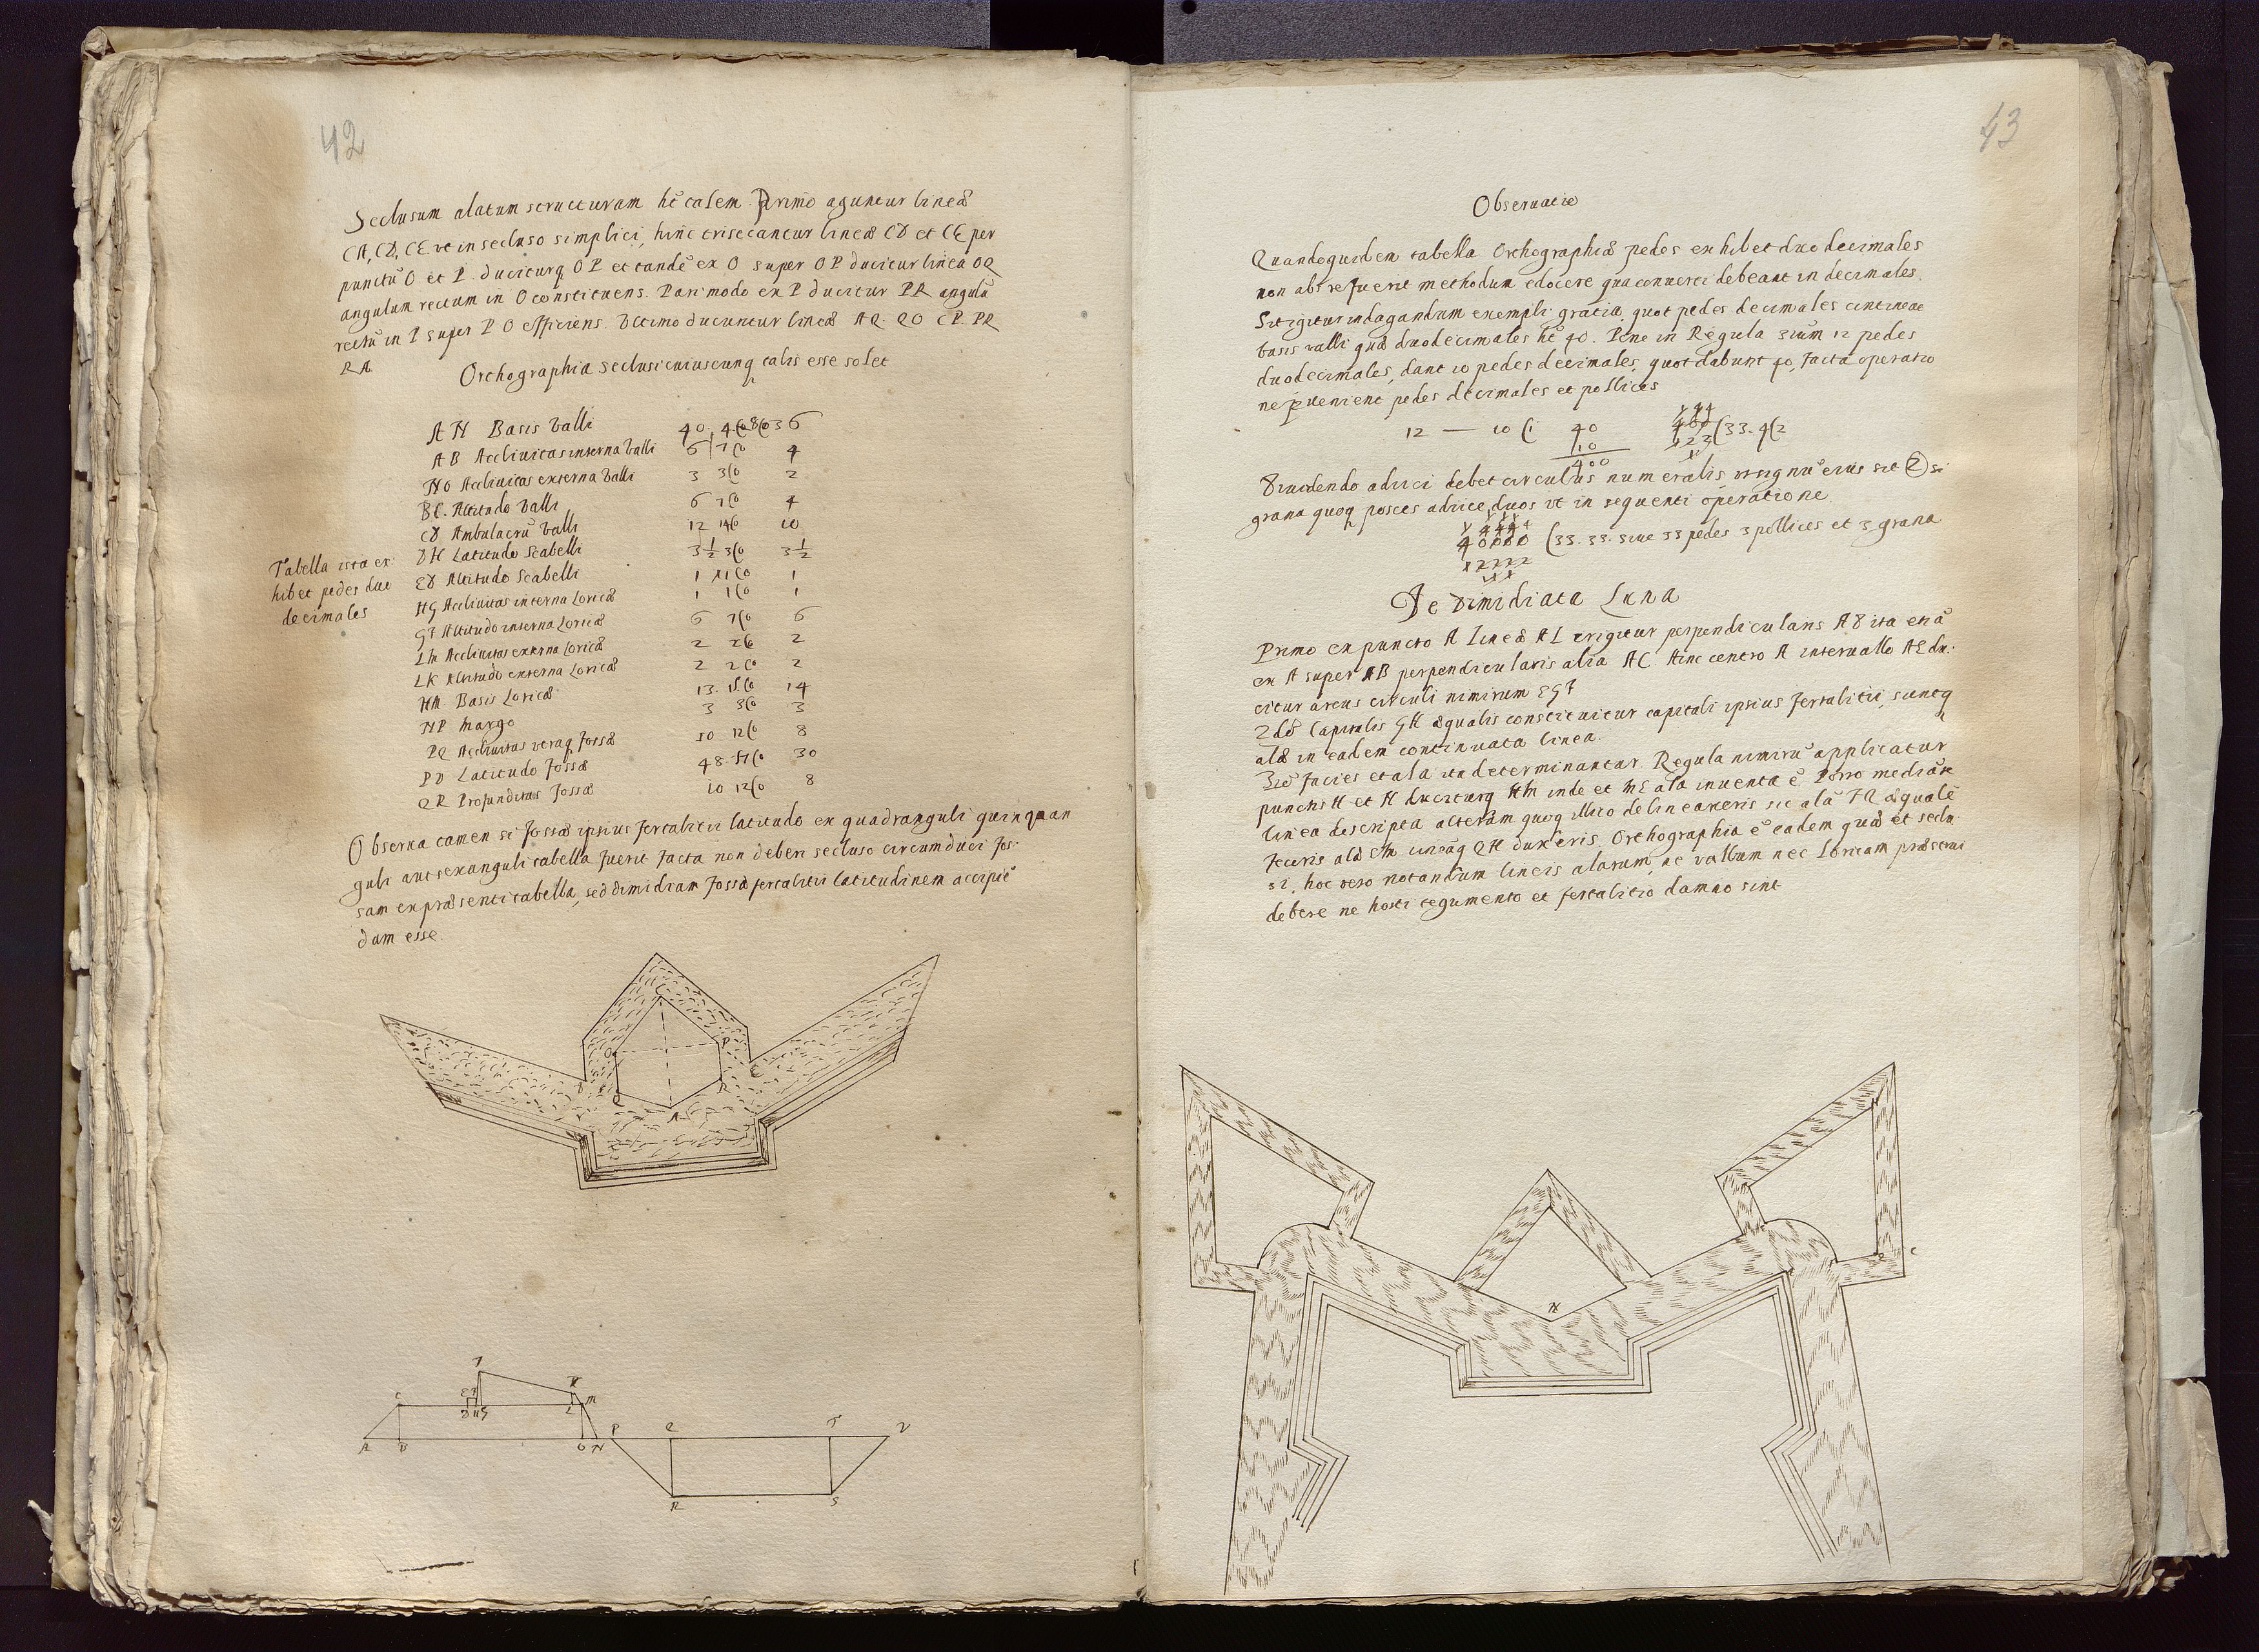 42
Seclusum alatum structuram hẽ talem. Primo aguntur lineæ
CA, CD, CE ut in secluso simplici, hinc trisecantur lineæ CD et CE per
punctũ O et P. duciturq OP et tandẽ ex O super OP ducitur linea OQ
angulum rectum in O constituens. Pari modo ex P ducitur PR angulũ
rectũ in P super PO efficiens. Ultimo ducuntur lineæ AQ. QO CP. PR
RA
Orthographia seclusi cuiuscunq talis esse solet
AN Basis Valli 40. 36
AB Acclivitas interna Valli 6 7(0 4
NO Acclivitas externa Valli 3 3(0 2
BC. Altitudo Valli 6 7(0 4
CD Ambulacrũ Valli 12 14(0 10
DH Latitudo Scabelli 3 1/2 3(0 3 1/2
ED Altitudo Scabelli 1 1(0 1
HG Acclivitas interna Loricæ 1 1(0 1
GF Altitudo interna Loricæ 6 7(0 6
LM Acclivitas externa Loricæ 2 2(0 2
LK Altitudo externa Loricæ 2 2(0 2
HM. Basis Loricæ 13. 15.(0 14
NP Margo 3 3(0 3
PQ Acclivitas utraq fossæ 10 12(0 8
PV Latitudo fossæ 48 57(0 30
QR Profunditas fossæ 10 12(0 8
Tabella ista ex
hibet pedes duo
decimales
Observa tamen si fossæ ipsius fortalitii latitudo ex quadranguli quinquan
guli aut sexanguli tabella fuerit facta non deberi secluso circumduci fos-
sam ex præsenti tabella, sed dimidiam fossæ fortalitii latitudinem accipiẽ
dam esse.
C
O P
D E
Q R
A
F
C E F K M
D H G L
A B O N P Q T V
R S
43
Observatio
Quandoquidem tabella Orthographiæ pedes exhibet duodecimales
non abs re fuerit methodum edocere qua converti debeant in decimales.
Sit igitur indagandum exempli gratia, quot pedes decimales contineat
basis valli quæ duodecimales hẽ 40. Pone in Regula 3ium 12 pedes
duodecimales, dant 10 pedes decimales, quot dabunt 40, facta operatio
ne pvenient pedes decimales et pollices
12 — 10 (i 40
10
400
400 (33. 4(2
123
Dividendo adiici debet circulus numeralis, ut signũ eius sit (2) si
grana quoq posces adiice duos ut in sequenti operatione.
40000 (33. 33. sive 33 pedes 3 pollices et 3 grana
12222
De Dimidiata Luna
Primo ex puncto A lineæ AL erigitur perpendicularis AD ita etiã
ex A super AB perpendicularis alia AC. Hinc centro A intervallo AE du-
citur arcus circuli nimirum EGF
2do Capitalis GH æqualis constituitur capitali ipsius fortalitii, suntq
alæ in eadem continuata linea.
3io facies et ala ita determinantur. Regula nimirũ applicatur
punctis H et H duciturq HM inde et ME ala inventa ẽ. Porro mediãte
linea descripta alteram quoq illico delineaveris sic alã FQ æqualẽ
feceris alæ EM unàq QH duxeris. Orthographia ẽ eadem quæ et seclu
si, hoc vero notandum lineis alarum, nc vallum nec Loricam præstrui
debere ne hosti tegumento et fortalitio damno sint
H